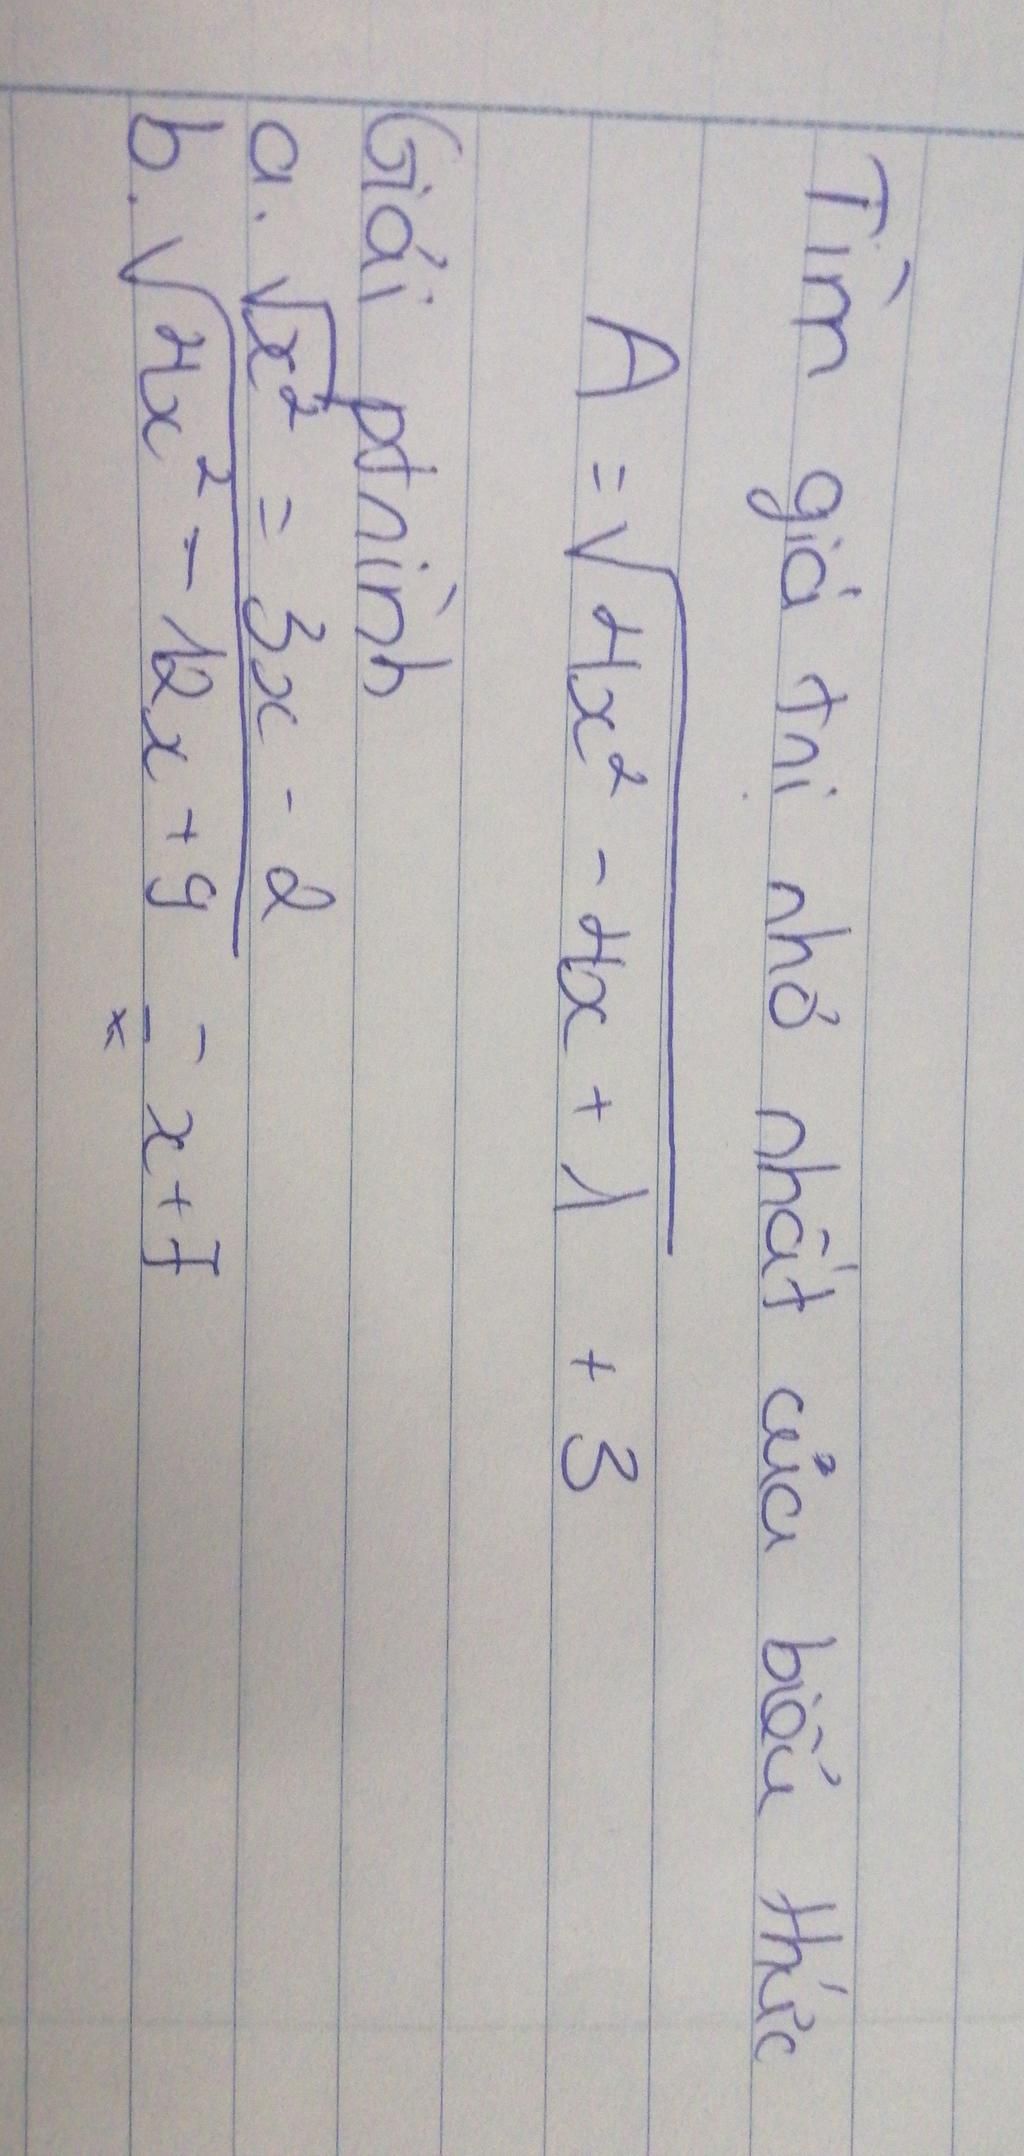 Tìm giá trị nhỏ nhất của biểu thức
A = √4x² - 4x + 1 + 3
Giải ptrình
a. √x² = 3x - 2
b. √4x² - 12x + 9 = x + 7
x